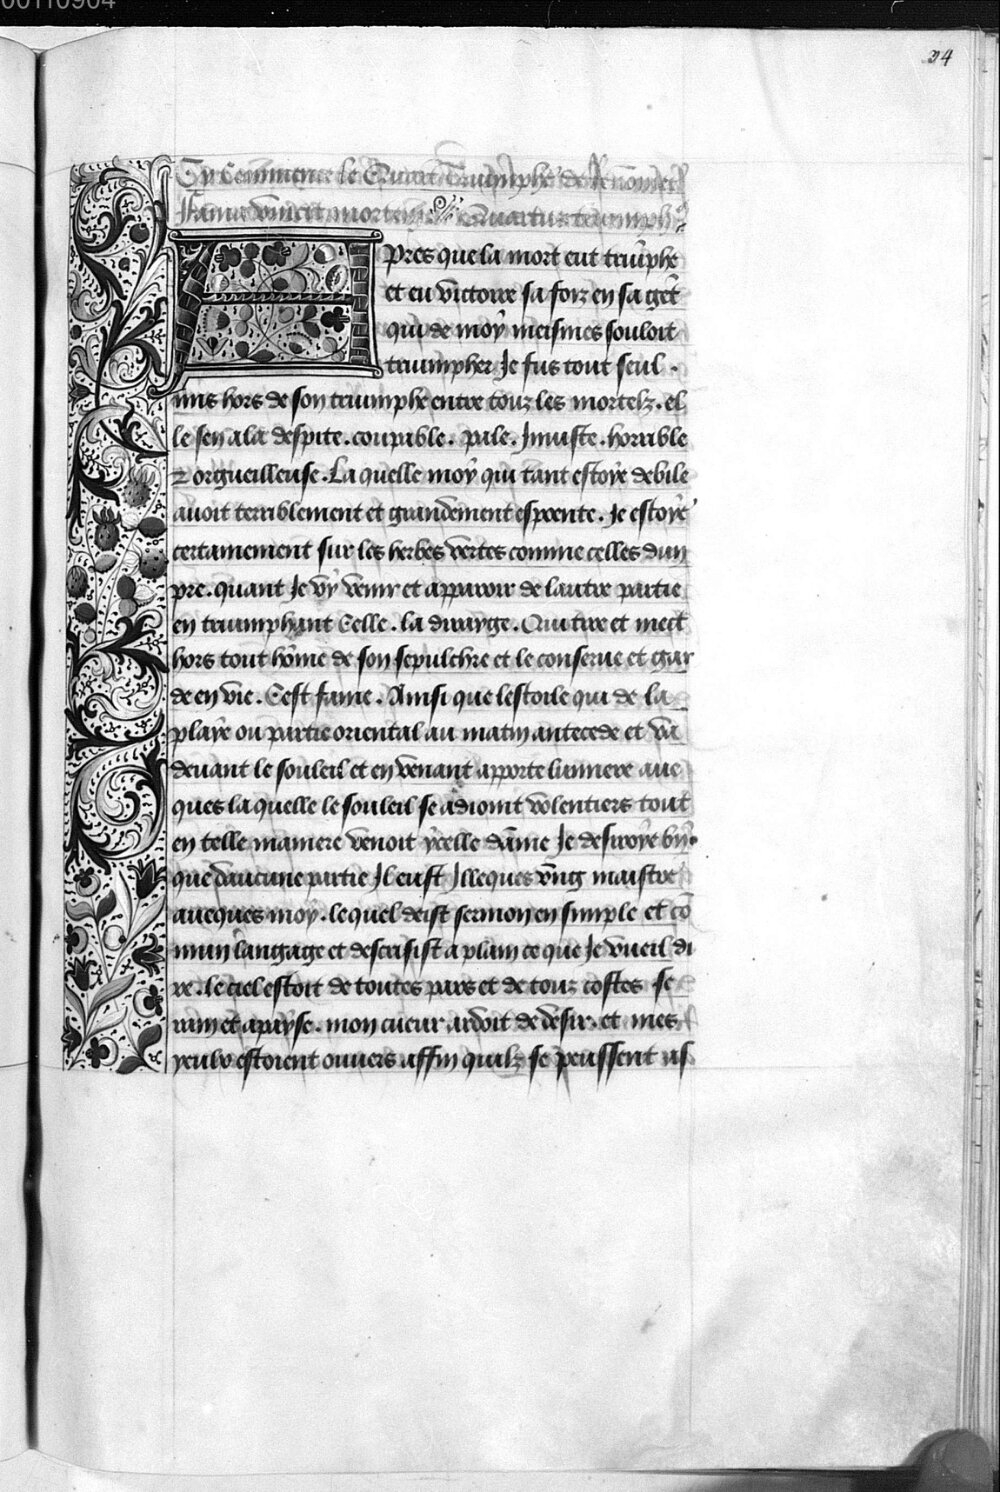 00110904
34
Cy Commence le Quart Triumphe de Renomee
Fama vincit mortem Quartus triumph9
Apres que la mort eut triũphe
et eu victoire sa foiz en sa gẽt
qui de moy meismes souloit
triumpher Je fus tout seul .
mis hors de son triumphe entre touz les mortelz . el
le sen ala despite . coupable . pale . Iniuste . horrible
⁊ orgueilleuse . La quelle moy qui tant estoye debile
auoit terriblement et grandement espoente . Je estoye
certainement sur les herbes vertes comme celles dun
pre . quant Je vy venir et apparoir de lautre partie
en triumphant Celle . la Qui tire et mect
hors tout hõme de son sepulchre et le conserue et gar
de en vie . Cest fame . Ainsi que lestoile qui de la
playe ou partie oriental au matin antecede et va
deuant le souleil et en venant apporte lumiere aue
ques la quelle le souleil se adioint volentiers tout
en telle maniere venoit ycelle dãme Je desiroye by̆
que daucune partie Il eust Illeques vng maistre
auecques moy . lequel deist sermon en simple et cõ
mun langage et descrisist a plain ce que Je vueil di
re . le ciel estoit de toutes pars et de touz costes se
rain et apayse . mon cueur ardoit de desir . et mes
yeulx estoient ouuers affin quilz se peussent as